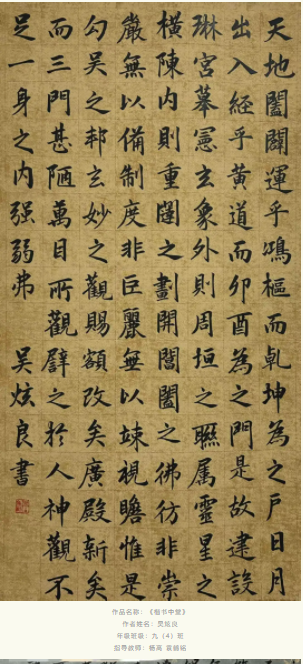 天地闔闢運乎鴻樞而乹坤為之戶日月
出入經乎黄道而卯酉為之門是故建設
琳宮摹憲玄象外則周垣之聮属靈星之
橫陳内則重闥之劃開閶闔之彿彷非崇
嚴無以備制度非巨麗無以竦視瞻惟是
勾吴之邦玄妙之觀賜額改矣廣殿新矣
而三門甚陋萬目所觀譬之於人神觀不
足一身之内强弱弗 吴炫良書
作品名称：《楷书中堂》
作者姓名：吴炫良
年级班级：九（4）班
指导教师：